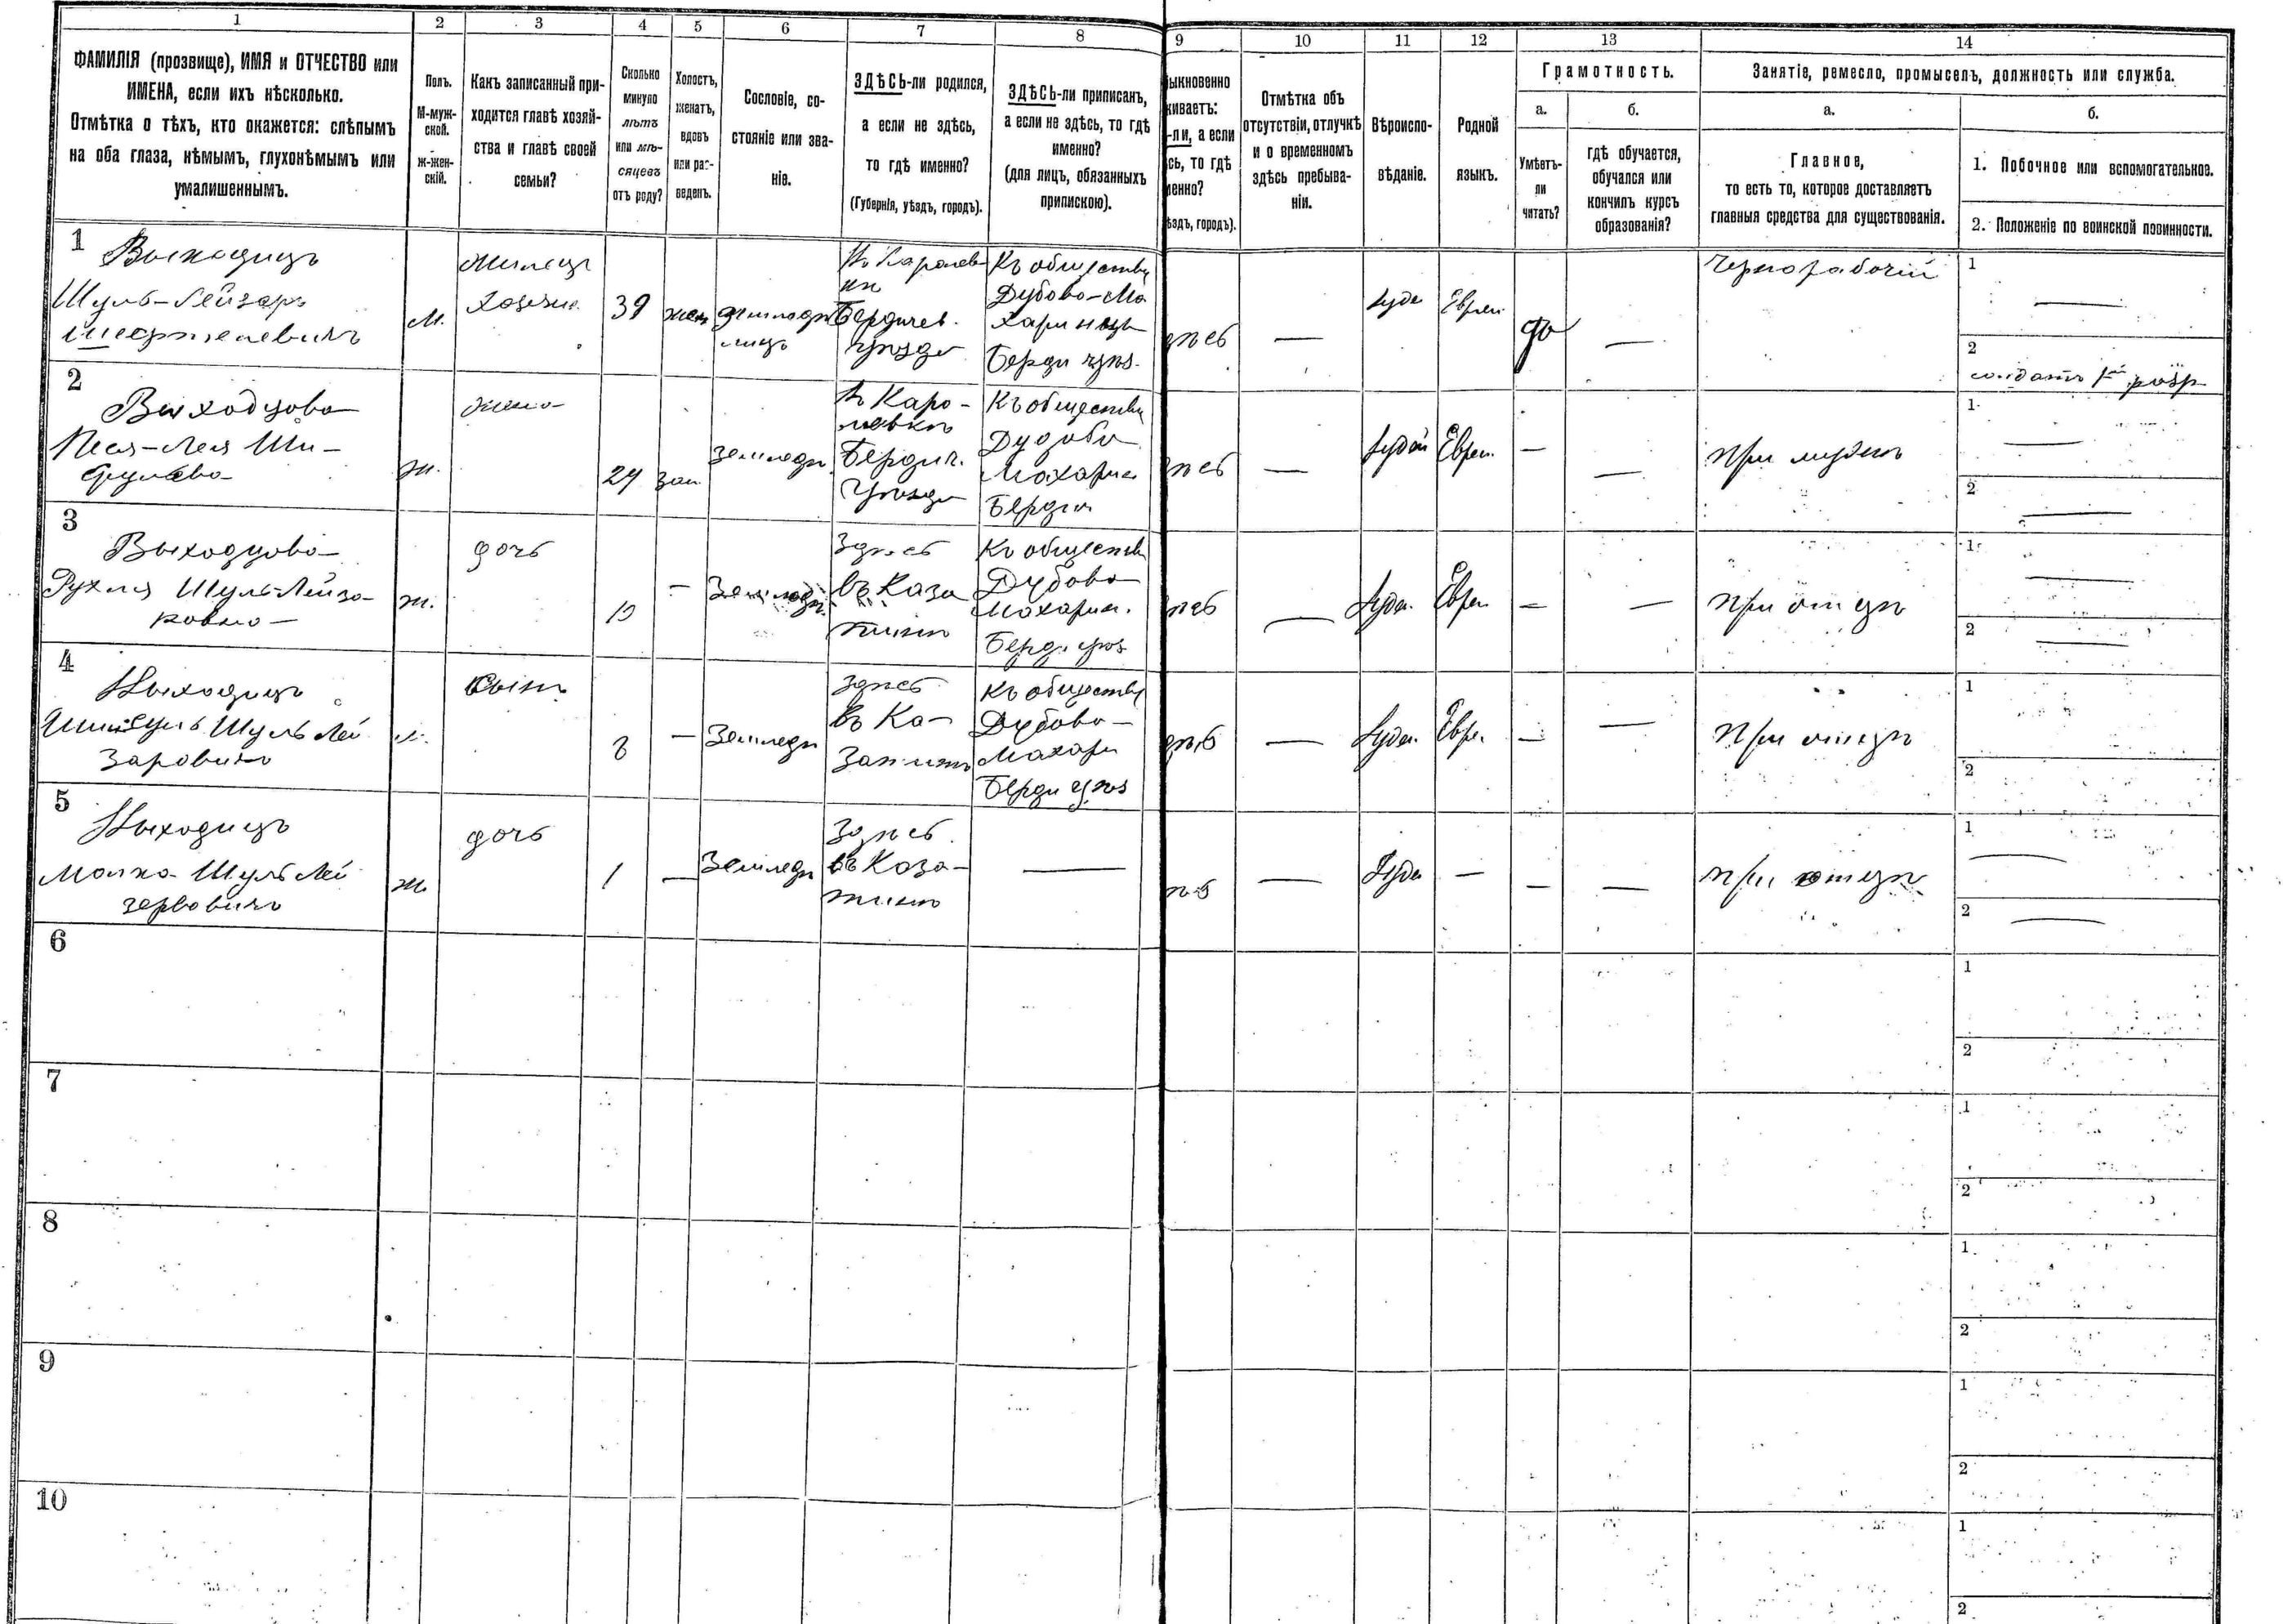 1 2 3 4 5 6 7 8 9 10 11 12 13 14
ФАМИЛІЯ (прозвище), ИМЯ и ОТЧЕСТВО или
ИМЕНА, если ихъ нѣсколько.
Отмѣтка о тѣхъ, кто окажется: слѣпымъ
на оба глаза, нѣмымъ, глухонѣмымъ или
умалишеннымъ.
Полъ.
М-муж-
ской.
ж-жен-
скій.
Какъ записанный при-
ходится главѣ хозяй-
ства и главѣ своей
семьи?
Сколько
минуло
лѣтъ
или мѣ-
сяцевъ
отъ роду?
Холостъ,
женатъ,
вдовъ
или раз-
веденъ.
Сословіе, со-
стояніе или зва-
ніе.
ЗДѢСЬ-ли родился,
а если не здѣсь,
то гдѣ именно?
(Губернія, уѣздъ, городъ).
ЗДѢСЬ-ли приписанъ,
а если не здѣсь, то гдѣ
именно?
(для лицъ, обязанныхъ
припискою).
ыкновенно
живаетъ:
-ли, а если
сь, то гдѣ
менно?
ѣздъ, городъ).
Отмѣтка объ
отсутствіи, отлучкѣ
и о временномъ
здѣсь пребыва-
ніи.
Вѣроиспо-
вѣданіе.
Родной
языкъ.
Грамотность.
а.
Умѣетъ-
ли
читать?
б.
гдѣ обучается,
обучался или
кончилъ курсъ
образованія?
Занятіе, ремесло, промыселъ, должность или служба.
а.
Главное,
то есть то, которое доставляетъ
главныя средства для существованія.
б.
1. Побочное или вспомогательное.
2. Положеніе по воинской повинности.
1
Выходецъ
Шуль-Лейзеръ
М.
Хозяин
39
жен
Бердичев.
уѣзда
Къ обществу
Дубово-Ма
харинец
Берди уѣз.
Іуде
Еврей
да
Чернорабочій
1
2
солдатъ 1 разр
2
Выходцова
Песя-Лея
ж.
жена
24
зам
земледе
въ Каро-
левкѣ
Бердич.
уѣзда
Къ обществу
Махарин
Бердич
Іудей
Еврей
При мужѣ
1
2
3
Выходцова
Рухля Шуль-Лейзе-
ровна
ж.
дочь
10
Земледе
Здѣсь
въ Каза
тинѣ
Къ обществу
Дубово
Махарин.
Берд. уѣз
Іуде.
Еврей
При отцѣ
1
2
4
Выходецъ
Шуль Лей
заровичъ
м.
сынъ
8
Земледе
Здѣсь
въ Ка-
затинѣ
Къ обществу
Дубово-
Махари
Берди уѣз
Іуде.
Евре.
При отцѣ
1
2
5
Выходецъ
Малка Шуль Лей
ж.
дочь
1
Земледе
Здѣсь
въ Каза-
тинѣ
Іуде
При отцѣ
1
2
6
1
2
7
1
2
8
1
2
9
1
2
10
1
2